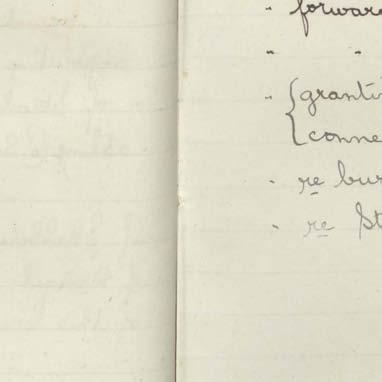 " forwar
" "
" { granti
conne
" re bur
" re St